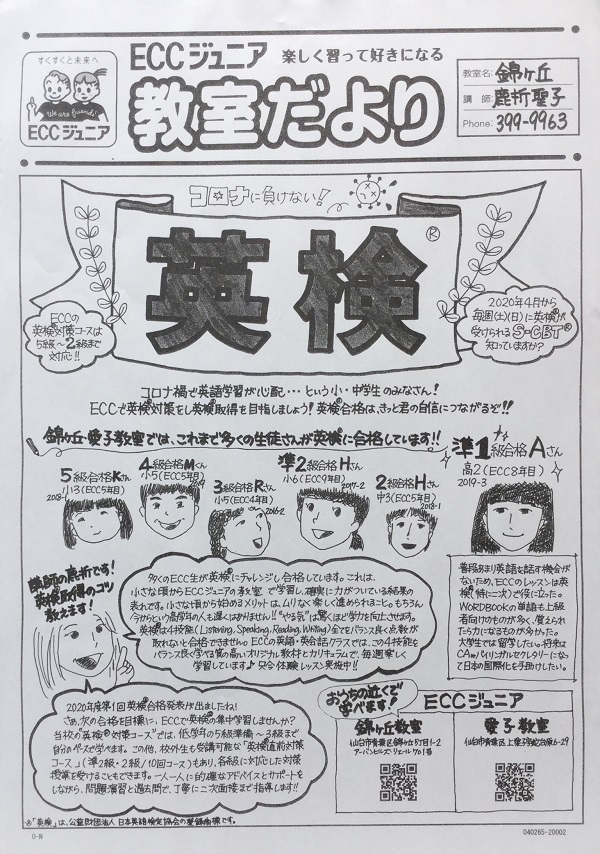 すくすくと未来へ
We are friends!
ECCジュニア
ECCジュニア 楽しく習って好きになる
教室だより
教室名: 錦ヶ丘
講 師: 鹿折聖子
Phone: 399-9963
コロナに負けない!
英検®
ECCの
英検対策コースは
5級～2級まで
対応!!
2020年4月から
毎週(土)(日)に英検が
受けられるS-CBT®
知っていますか?
コロナ禍で英語学習が心配…という小・中学生のみなさん!
ECCで英検対策をし英検取得を目指しましょう!英検合格は、きっと君の自信につながるぞ!!
錦ヶ丘・愛子教室では、これまで多くの生徒さんが英検に合格しています!!
5級合格Kさん
小3(ECC5年目)
2018-1
4級合格Mくん
小5(ECC5年目)
3級合格Rさん
小5(ECC4年目)
2016-2
準2級合格Hさん
小6(ECC9年目)
2017-2
2級合格Hさん
中3(ECC5年目)
2018-1
準1級合格Aさん
高2(ECC8年目)
2019-3
講師の鹿折です!
英検取得のコツ
教えます!
多くのECC生が英検にチャレンジし合格しています。これは、
小さな頃からECCジュニアの教室で学習し、確実に力がついている結果の
表れです。小さな頃から始めるメリットは、ムリなく楽しく進められること。もちろん
今からという高学年の人も遅くはありません!!"やる気"は驚くほど学力を向上させます。
英検は4技能(Listening, Speaking, Reading, Writing)全てをバランス良く点数が
取れないと合格できません。ECCの英語・英会話クラスでは、この4技能を
バランス良く学べる質の高いオリジナル教材とカリキュラムで、毎週楽しく
学習しています♪只今体験レッスン実施中!!
普段あまり英語を話す機会が
ないため、ECCのレッスンは英
検(特に二次)で役に立った。
WORDBOOKの単語も上級
者向けのものが多く、覚えられ
たら力になるものが多かった。
大学生では留学したい。将来は
CAかバイリンガルセクレタリーになっ
て日本の国際化を手助けしたい。
2020年度第1回英検合格発表が出ましたね!
さあ、次の合格を目標に、ECCで英検の集中学習しませんか?
当校の英検®対策コースでは、低学年の5級準備～3級まで
自分のペースで学べます。この他、校外生も受講可能な「英検直前対策
コース」(準2級・2級/10回コース)もあり、各級に対応した対策
授業を受けることもできます。一人一人に的確なアドバイスとサポートを
しながら、問題演習と過去問で、丁寧に二次面接まで指導します!!
おうちの近くで
学べます!
ECCジュニア
錦ヶ丘教室
仙台市青葉区錦ヶ丘5丁目1-2
愛子教室
仙台市青葉区上愛子字蛇台原6-29
※「英検」は、公益財団法人 日本英語検定協会の登録商標です。
O-N
040265-20002